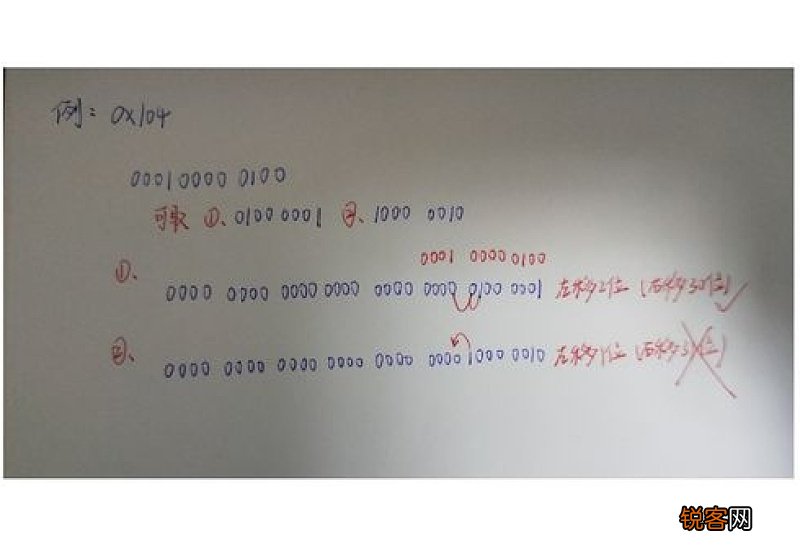 例：0x104
0001 0000 0100
可取 ①、0100 0001 ②、1000 0010
0001 0000 0100
①、
0000 0000 0000 0000 0000 0000 0100 0001 左移2位 (右移30位) ✓
②、
0000 0000 0000 0000 0000 0000 1000 0010 左移1位 (右移31位)
锐客网